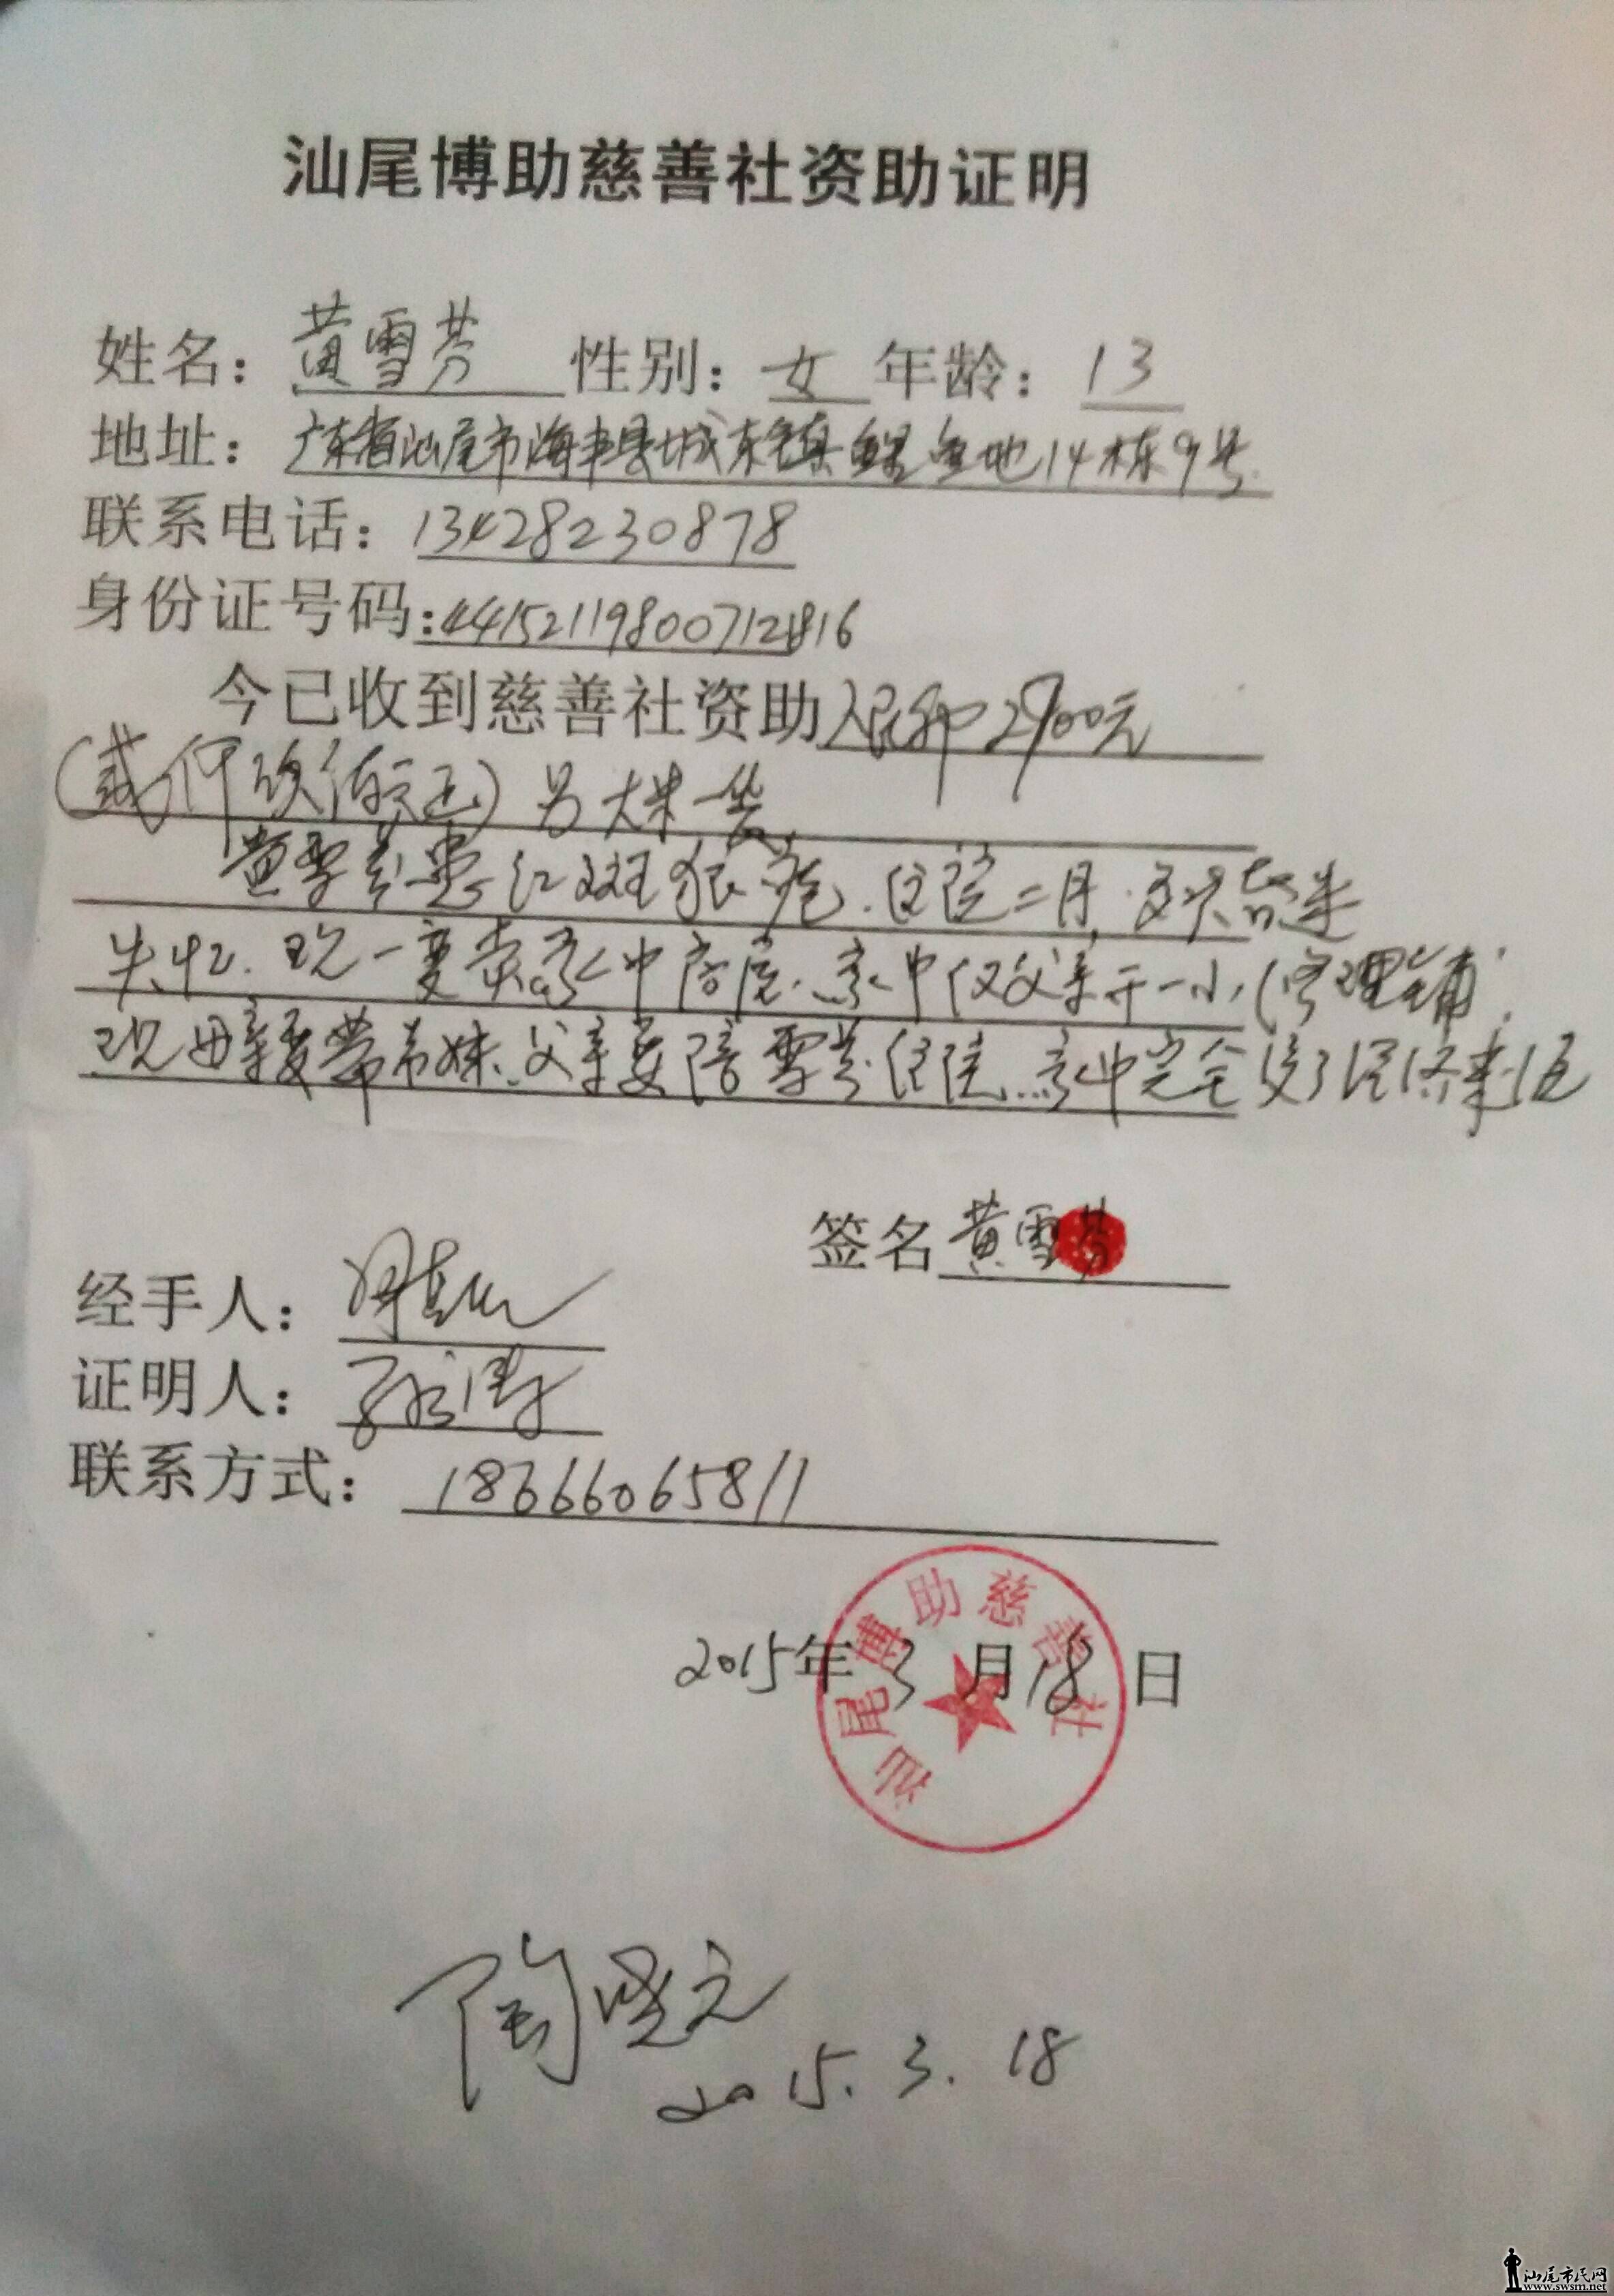 汕尾博助慈善社资助证明
姓名：黄雪芬 性别：女 年龄：13
地址：广东省汕尾市海丰县城东镇鲤鱼地14栋9号
联系电话：13428230878
身份证号码：441521198007121816
今已收到慈善社资助人民币2900元
(贰仟玖佰元正)另大米一袋
黄雪芬患红斑狼疮.住院二月,多次昏迷
失忆.现一变卖家中房屋.家中仅父亲开一小修理铺.
现母亲要带弟妹.父亲要陪雪芬住院.家中完全没了经济来源
签名 黄雪芬
经手人：
证明人：
联系方式：18666065811
2015年3月18日
汕尾博助慈善社
2015.3.18
汕尾市民网
www.swsm.net